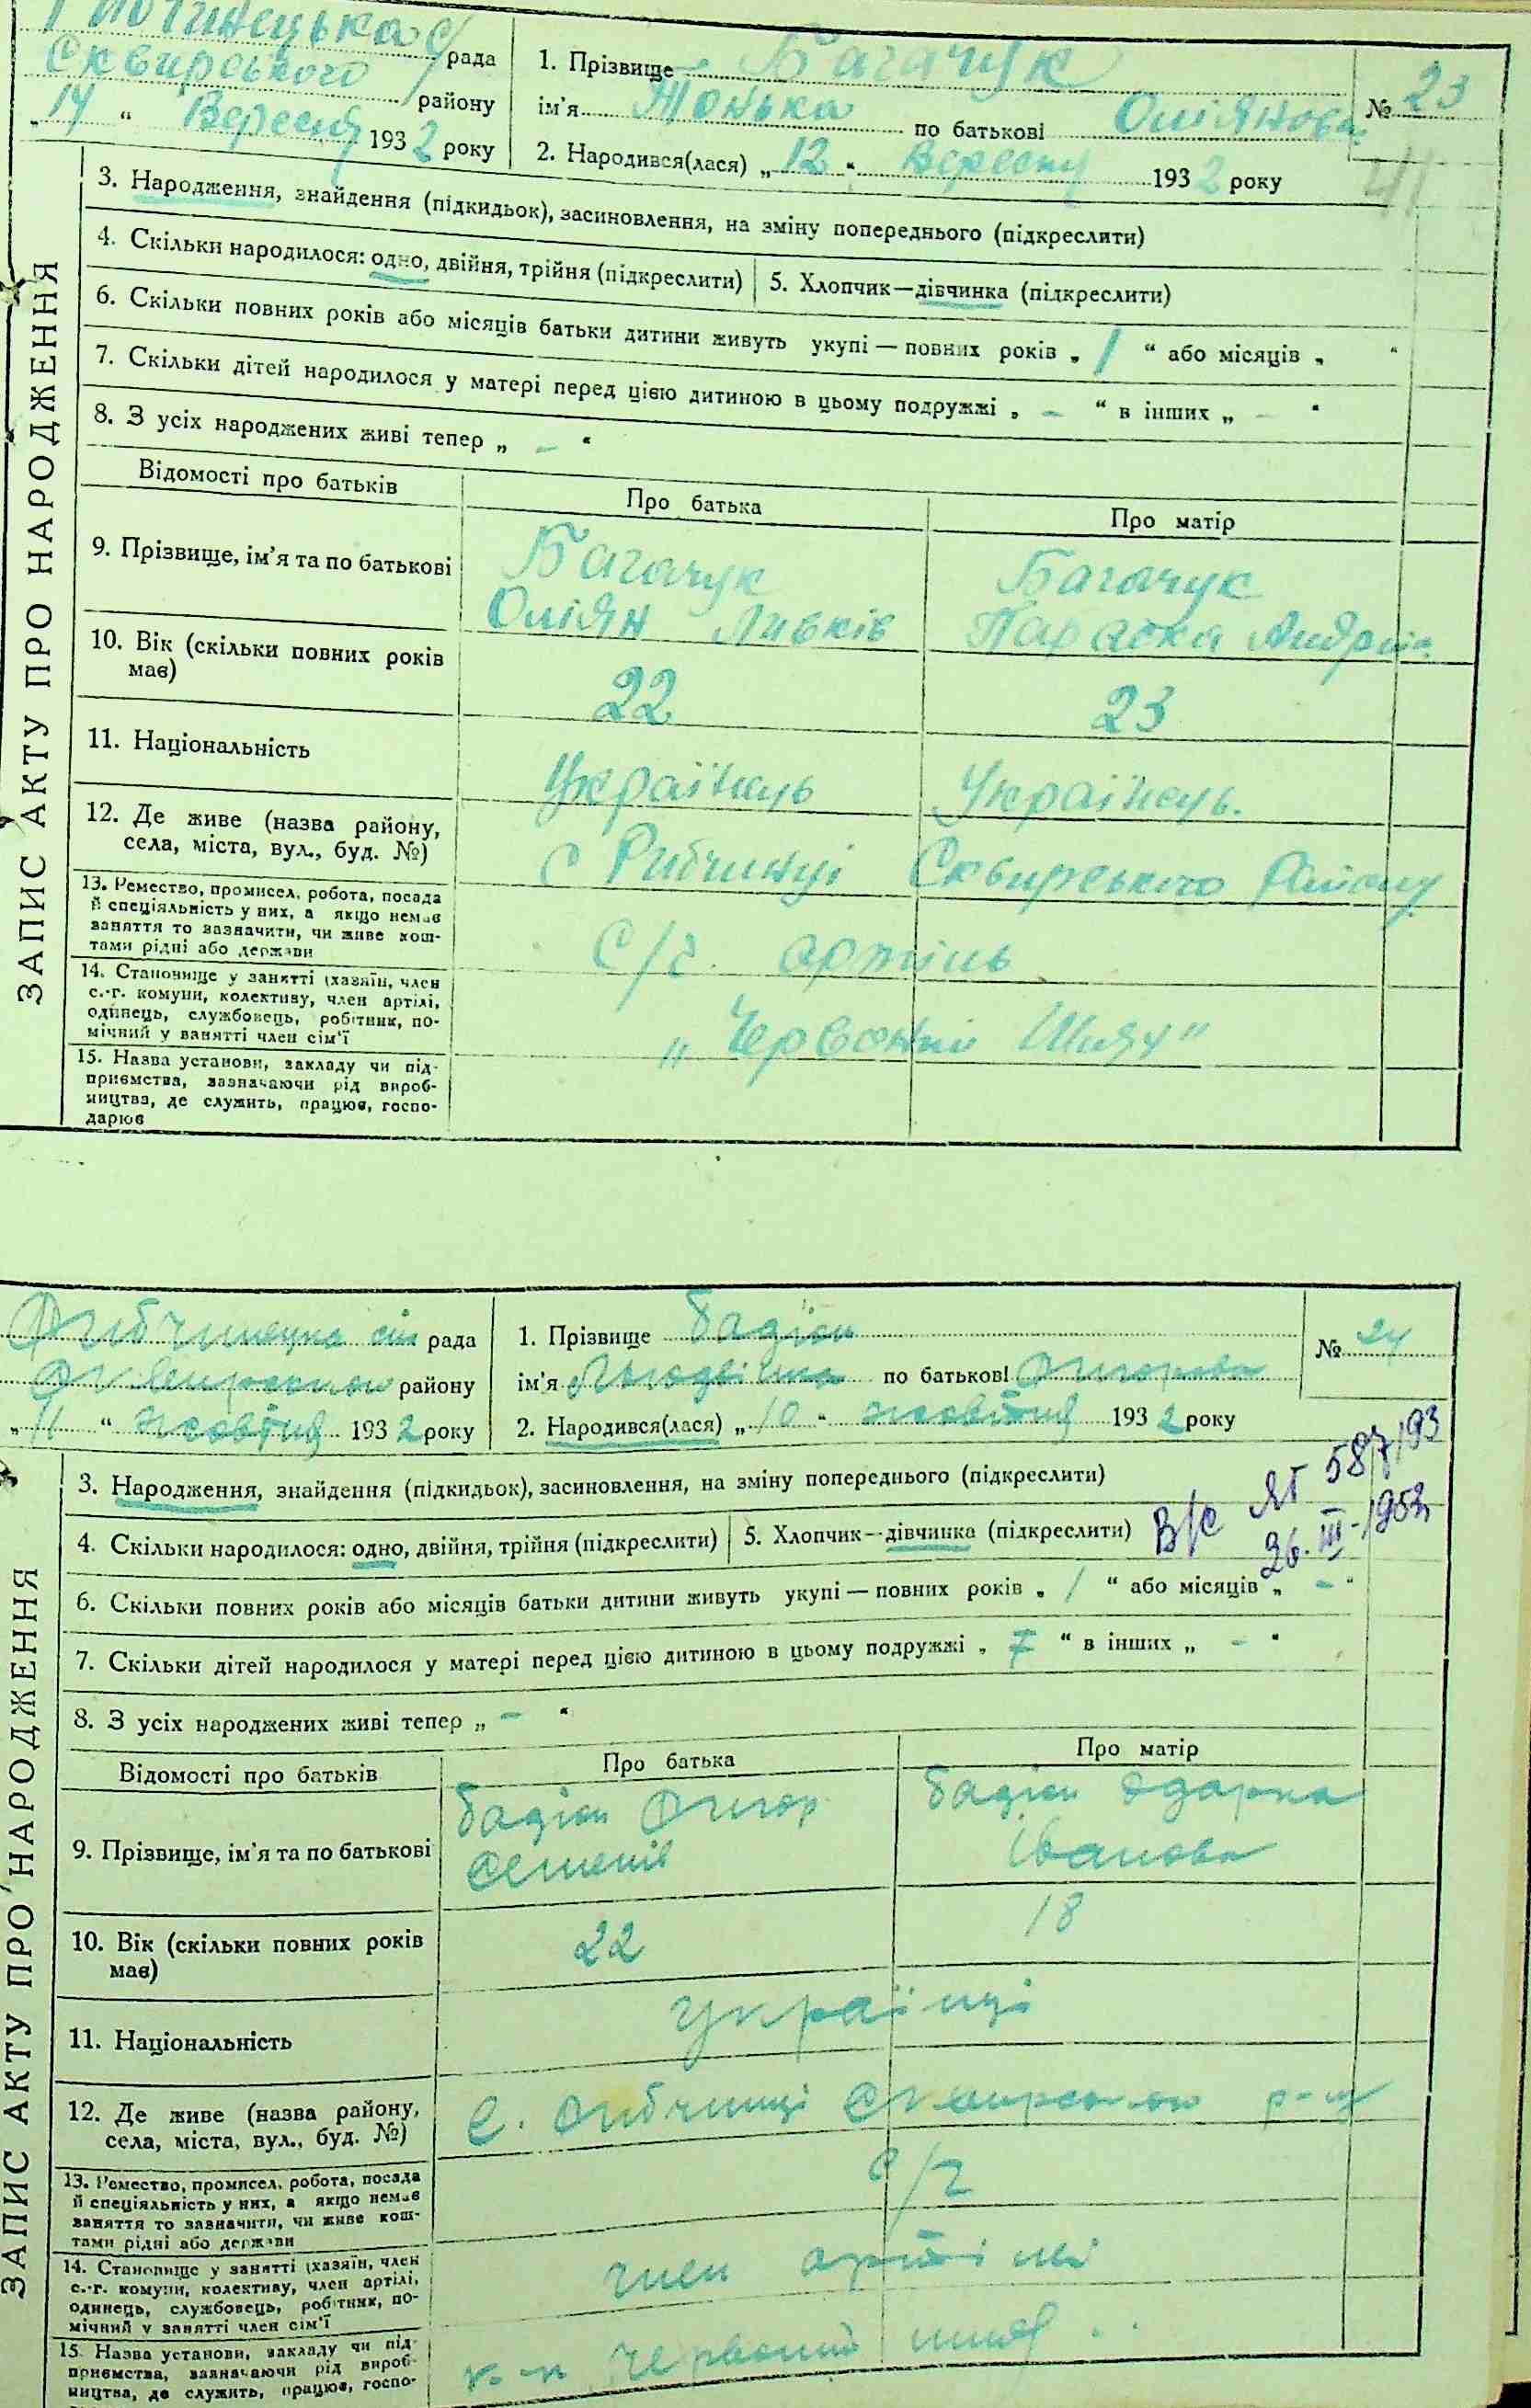 Сквирського рада
району
„14“ Вересня 1932 року
1. Прізвище Багачук
ім'я Тонька по батькові Оліянова
№ 23
2. Народився(лася) „12“ Вересня 1932 року
41
ЗАПИС АКТУ ПРО НАРОДЖЕННЯ
3. Народження, знайдення (підкидьок), засиновлення, на зміну попереднього (підкреслити)
4. Скільки народилося: одно, двійня, трійня (підкреслити)
5. Хлопчик—дівчинка (підкреслити)
6. Скільки повних років або місяців батьки дитини живуть укупі — повних років „1“ або місяців „ “
7. Скільки дітей народилося у матері перед цією дитиною в цьому подружжі „–“ в інших „–“
8. З усіх народжених живі тепер „–“
Відомості про батьків
Про батька
Про матір
9. Прізвище, ім'я та по батькові
Багачук
Оліян Ливків
Багачук
Параска Андріїв
10. Вік (скільки повних років
має)
22
23
11. Національність
Українець
Українець.
12. Де живе (назва району,
села, міста, вул., буд. №)
С Рибчинці Сквирського Району
13. Ремество, промисел, робота, посада
й спеціяльність у них, а якщо немає
заняття то зазначити, чи живе кош-
тами рідні або держави
С/г. артіль
14. Становище у занятті (хазяїн, член
с.-г. комуни, колективу, член артілі,
одинець, службовець, робітник, по-
мічний у занятті член сім'ї
„Червоний Шлях“
15. Назва установи, закладу чи під-
приємства, зазначаючи рід вироб-
ництва, де служить, працює, госпо-
дарює
Рибчинецька сіл рада
Сквирського району
„11“ жовтня 1932 року
1. Прізвище Бадіон
ім'я по батькові
№ 24
2. Народився(лася) „10“ жовтня 1932 року
В/с ЯГ 587193
26.III-1953
ЗАПИС АКТУ ПРО НАРОДЖЕННЯ
3. Народження, знайдення (підкидьок), засиновлення, на зміну попереднього (підкреслити)
4. Скільки народилося: одно, двійня, трійня (підкреслити)
5. Хлопчик—дівчинка (підкреслити)
6. Скільки повних років або місяців батьки дитини живуть укупі — повних років „1“ або місяців „–“
7. Скільки дітей народилося у матері перед цією дитиною в цьому подружжі „“ в інших „–“
8. З усіх народжених живі тепер „–“
Відомості про батьків
Про батька
Про матір
9. Прізвище, ім'я та по батькові
Бадіон
Семенів
Бадіон Одарка
Іванова
10. Вік (скільки повних років
має)
22
18
11. Національність
українці
12. Де живе (назва району,
села, міста, вул., буд. №)
с. Рибчинці Сквирського р-ну
13. Ремество, промисел, робота, посада
й спеціяльність у них, а якщо немає
заняття то зазначити, чи живе кош-
тами рідні або держави
с/г
14. Становище у занятті (хазяїн, член
с.-г. комуни, колективу, член артілі,
одинець, службовець, робітник, по-
мічний у занятті член сім'ї
член артілі
15. Назва установи, закладу чи під-
приємства, зазначаючи рід вироб-
ництва, де служить, працює, госпо-
червоний шлях